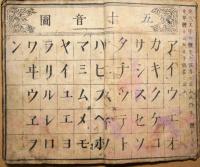 五十音圖
アイウエオ
カキクケコ
サシスセソ
タチツテト
ナニヌネノ
ハヒフヘホ
マミムメモ
ヤイユエヨ
ラリルレロ
ワヰウヱヲ
ン